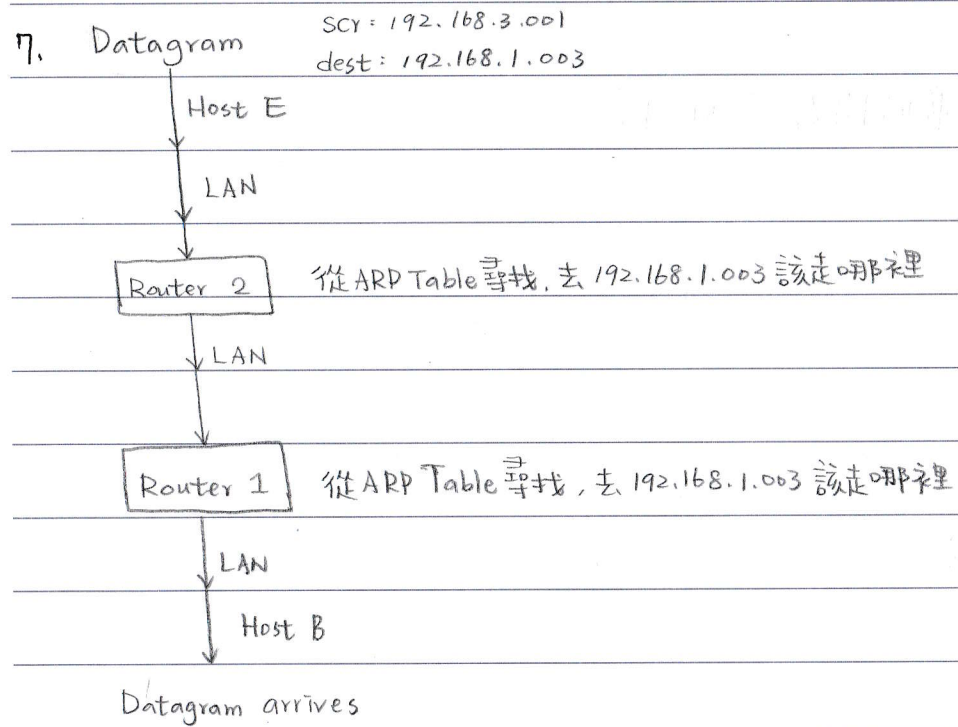 7. Datagram
scr: 192.168.3.001
dest: 192.168.1.003
Host E
LAN
Router 2
從ARP Table尋找, 去 192.168.1.003 該走哪裡
LAN
Router 1
從ARP Table尋找, 去 192.168.1.003 該走哪裡
LAN
Host B
Datagram arrives